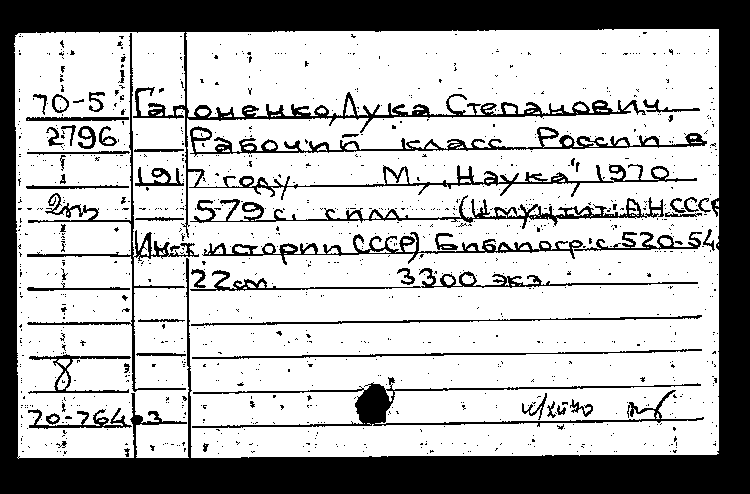 70-5 Гапоненко, Лука Степанович.
2796 Рабочий класс России в
1917 году. М., „Наука", 1970.
579 с. с илл. (Шмуцтит.: АН СССР
Ин-т истории СССР). Библиогр.: с. 520-54
22 см. 3300 экз.
8
70-76403